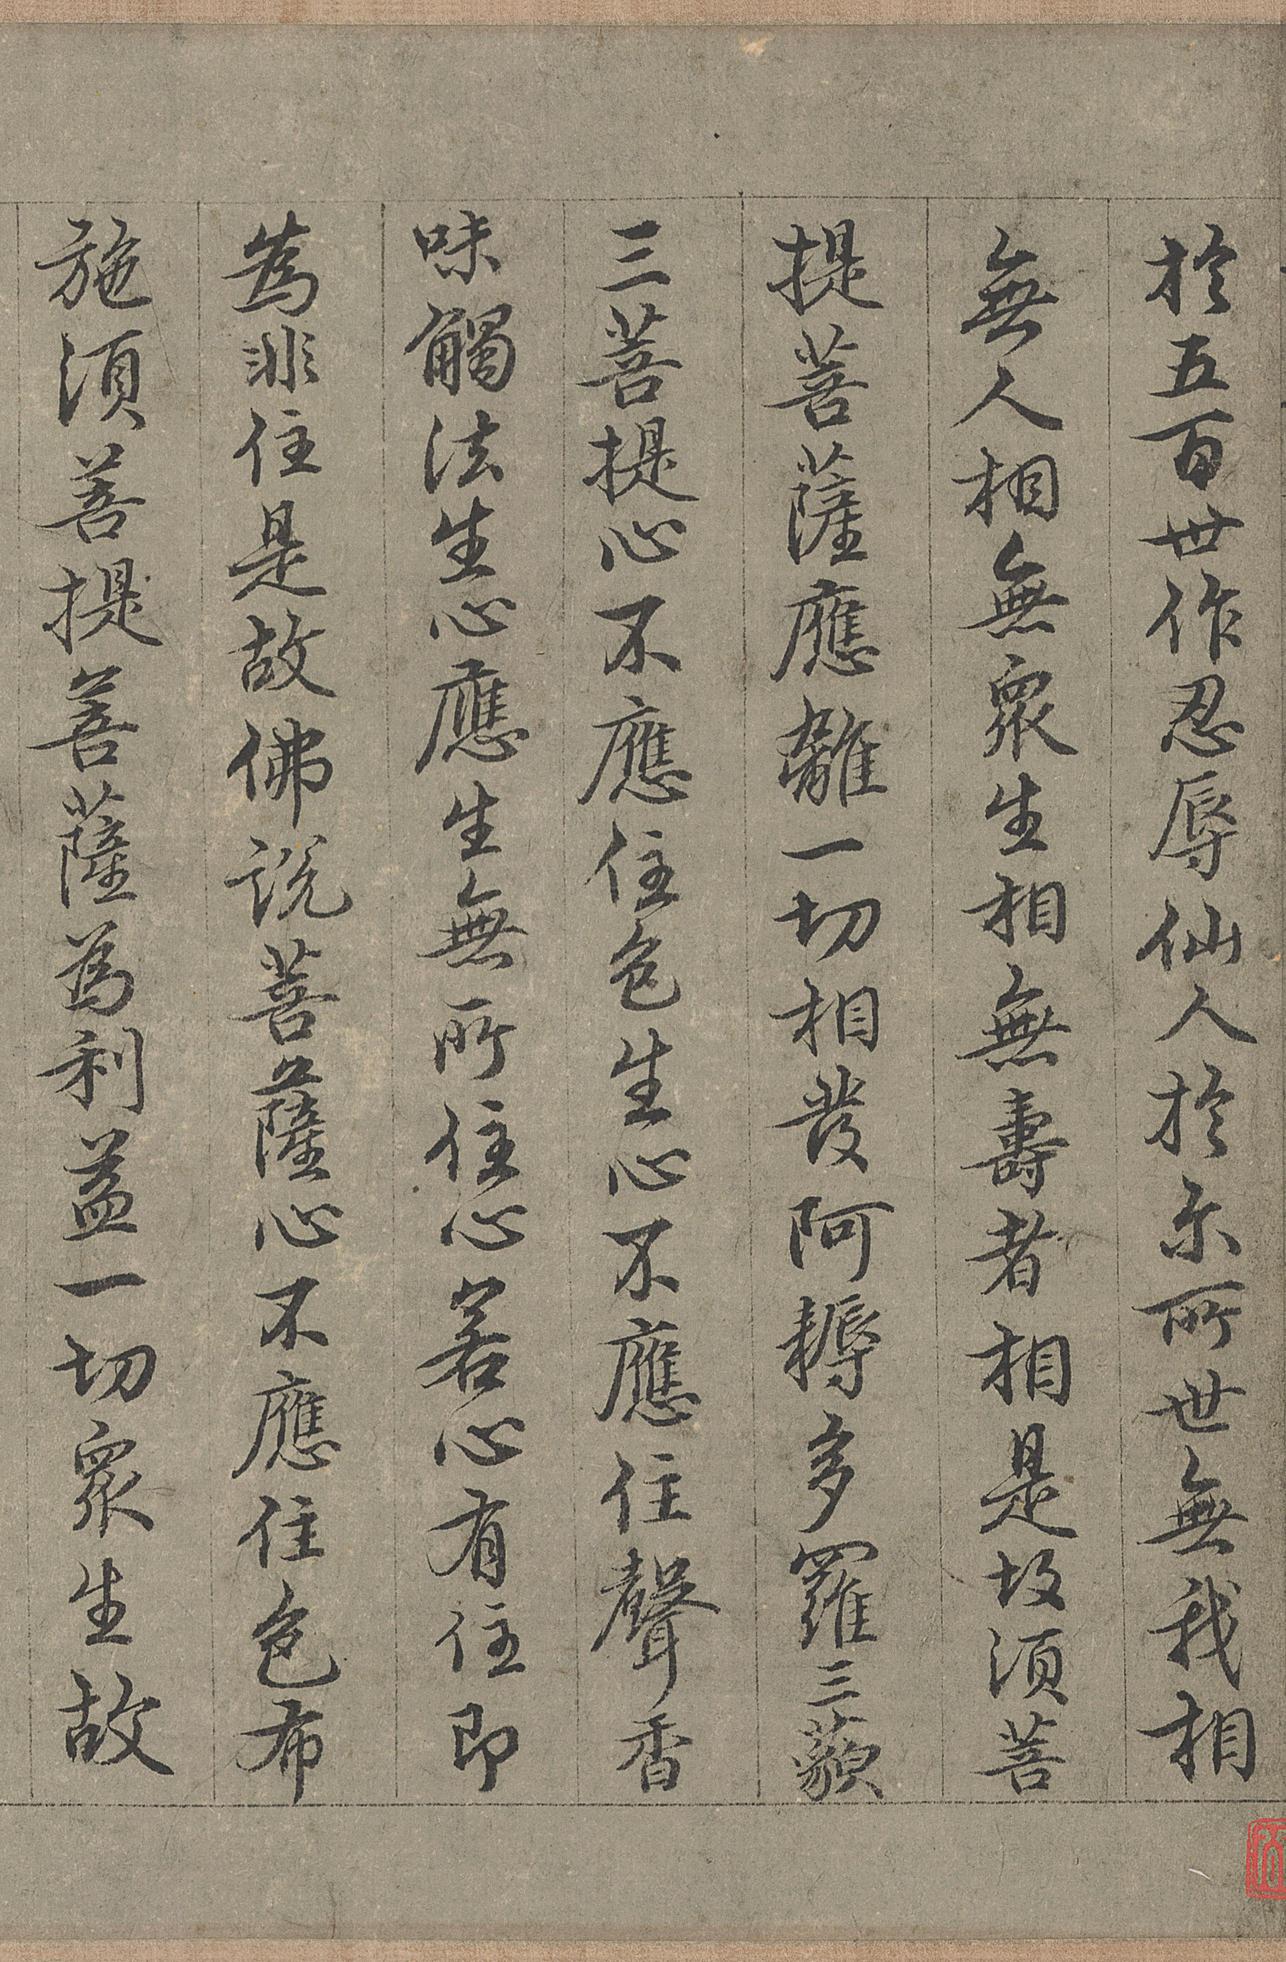 於五百世作忍辱仙人於尒所世無我相
無人相無衆生相無壽者相是故須菩
提菩薩應離一切相發阿耨多羅三藐
三菩提心不應住色生心不應住聲香
味觸法生心應生無所住心若心有住即
為非住是故佛說菩薩心不應住色布
施須菩提菩薩為利益一切衆生故